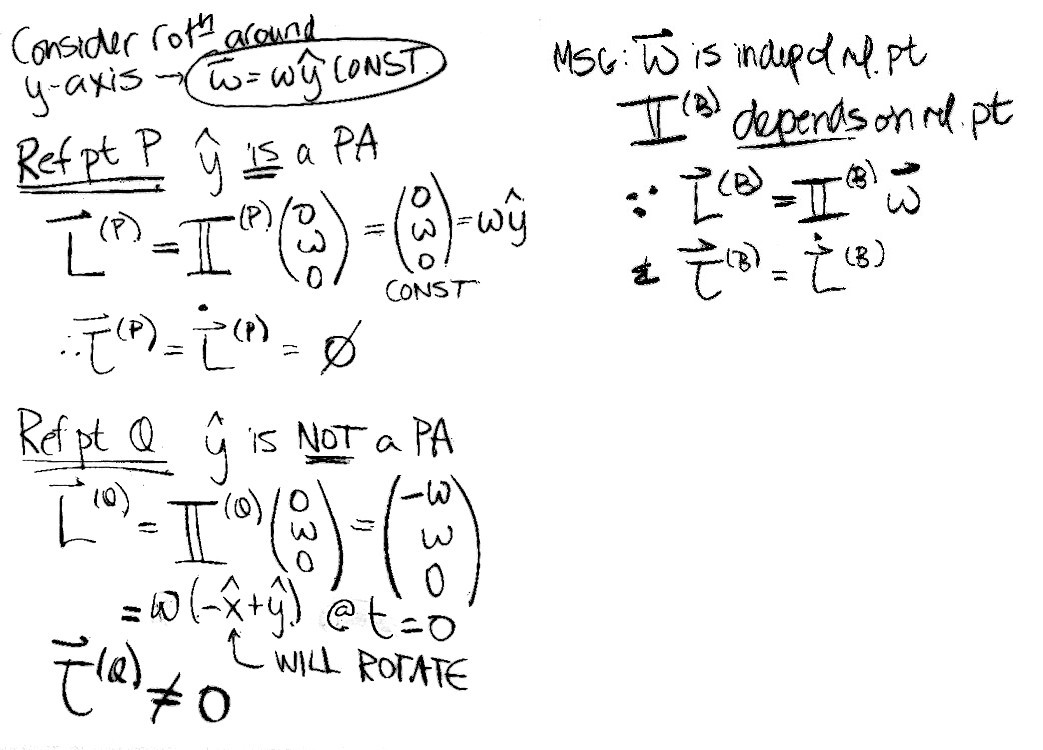 Consider rotⁿ around
y-axis → ω⃗ = ωŷ CONST
Ref pt P ŷ IS a PA
L⃗^(P) = 𝕀^(P) (0 ω 0) = (0 ω 0) = ωŷ
CONST
∴ τ⃗^(P) = L⃗̇^(P) = ∅
Ref pt Q ŷ is NOT a PA
L⃗^(Q) = 𝕀^(Q) (0 ω 0) = (-ω ω 0)
= ω(-x̂+ŷ) @ t=0
↑ WILL ROTATE
τ⃗^(Q) ≠ 0
MSG: ω⃗ is indep of ref. pt
𝕀^(B) depends on ref. pt
∵ L⃗^(B) = 𝕀^(B) ω⃗
& τ⃗^(B) = L⃗̇^(B)